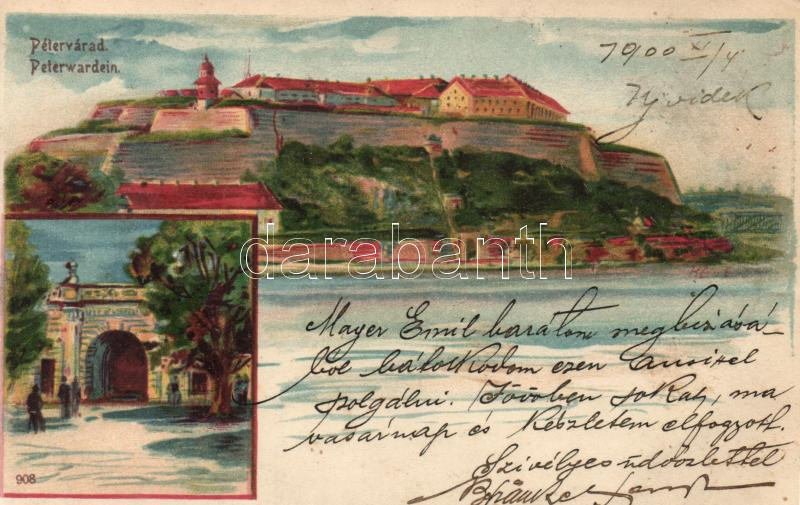 Pétervárad.
Peterwardein.
1900 V/4
Ujvidek
darabanth
Mayer Emil barátom megbizásá-
ból bátorkodom ezen
szolgálni. Jövőben sokat, ma
vasárnap és készletem elfogyott.
Szivélyes üdvözlettel
908